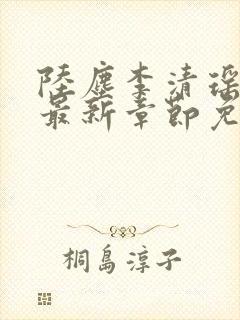 陸塵李清瑤
最新章節免
桐島淳子